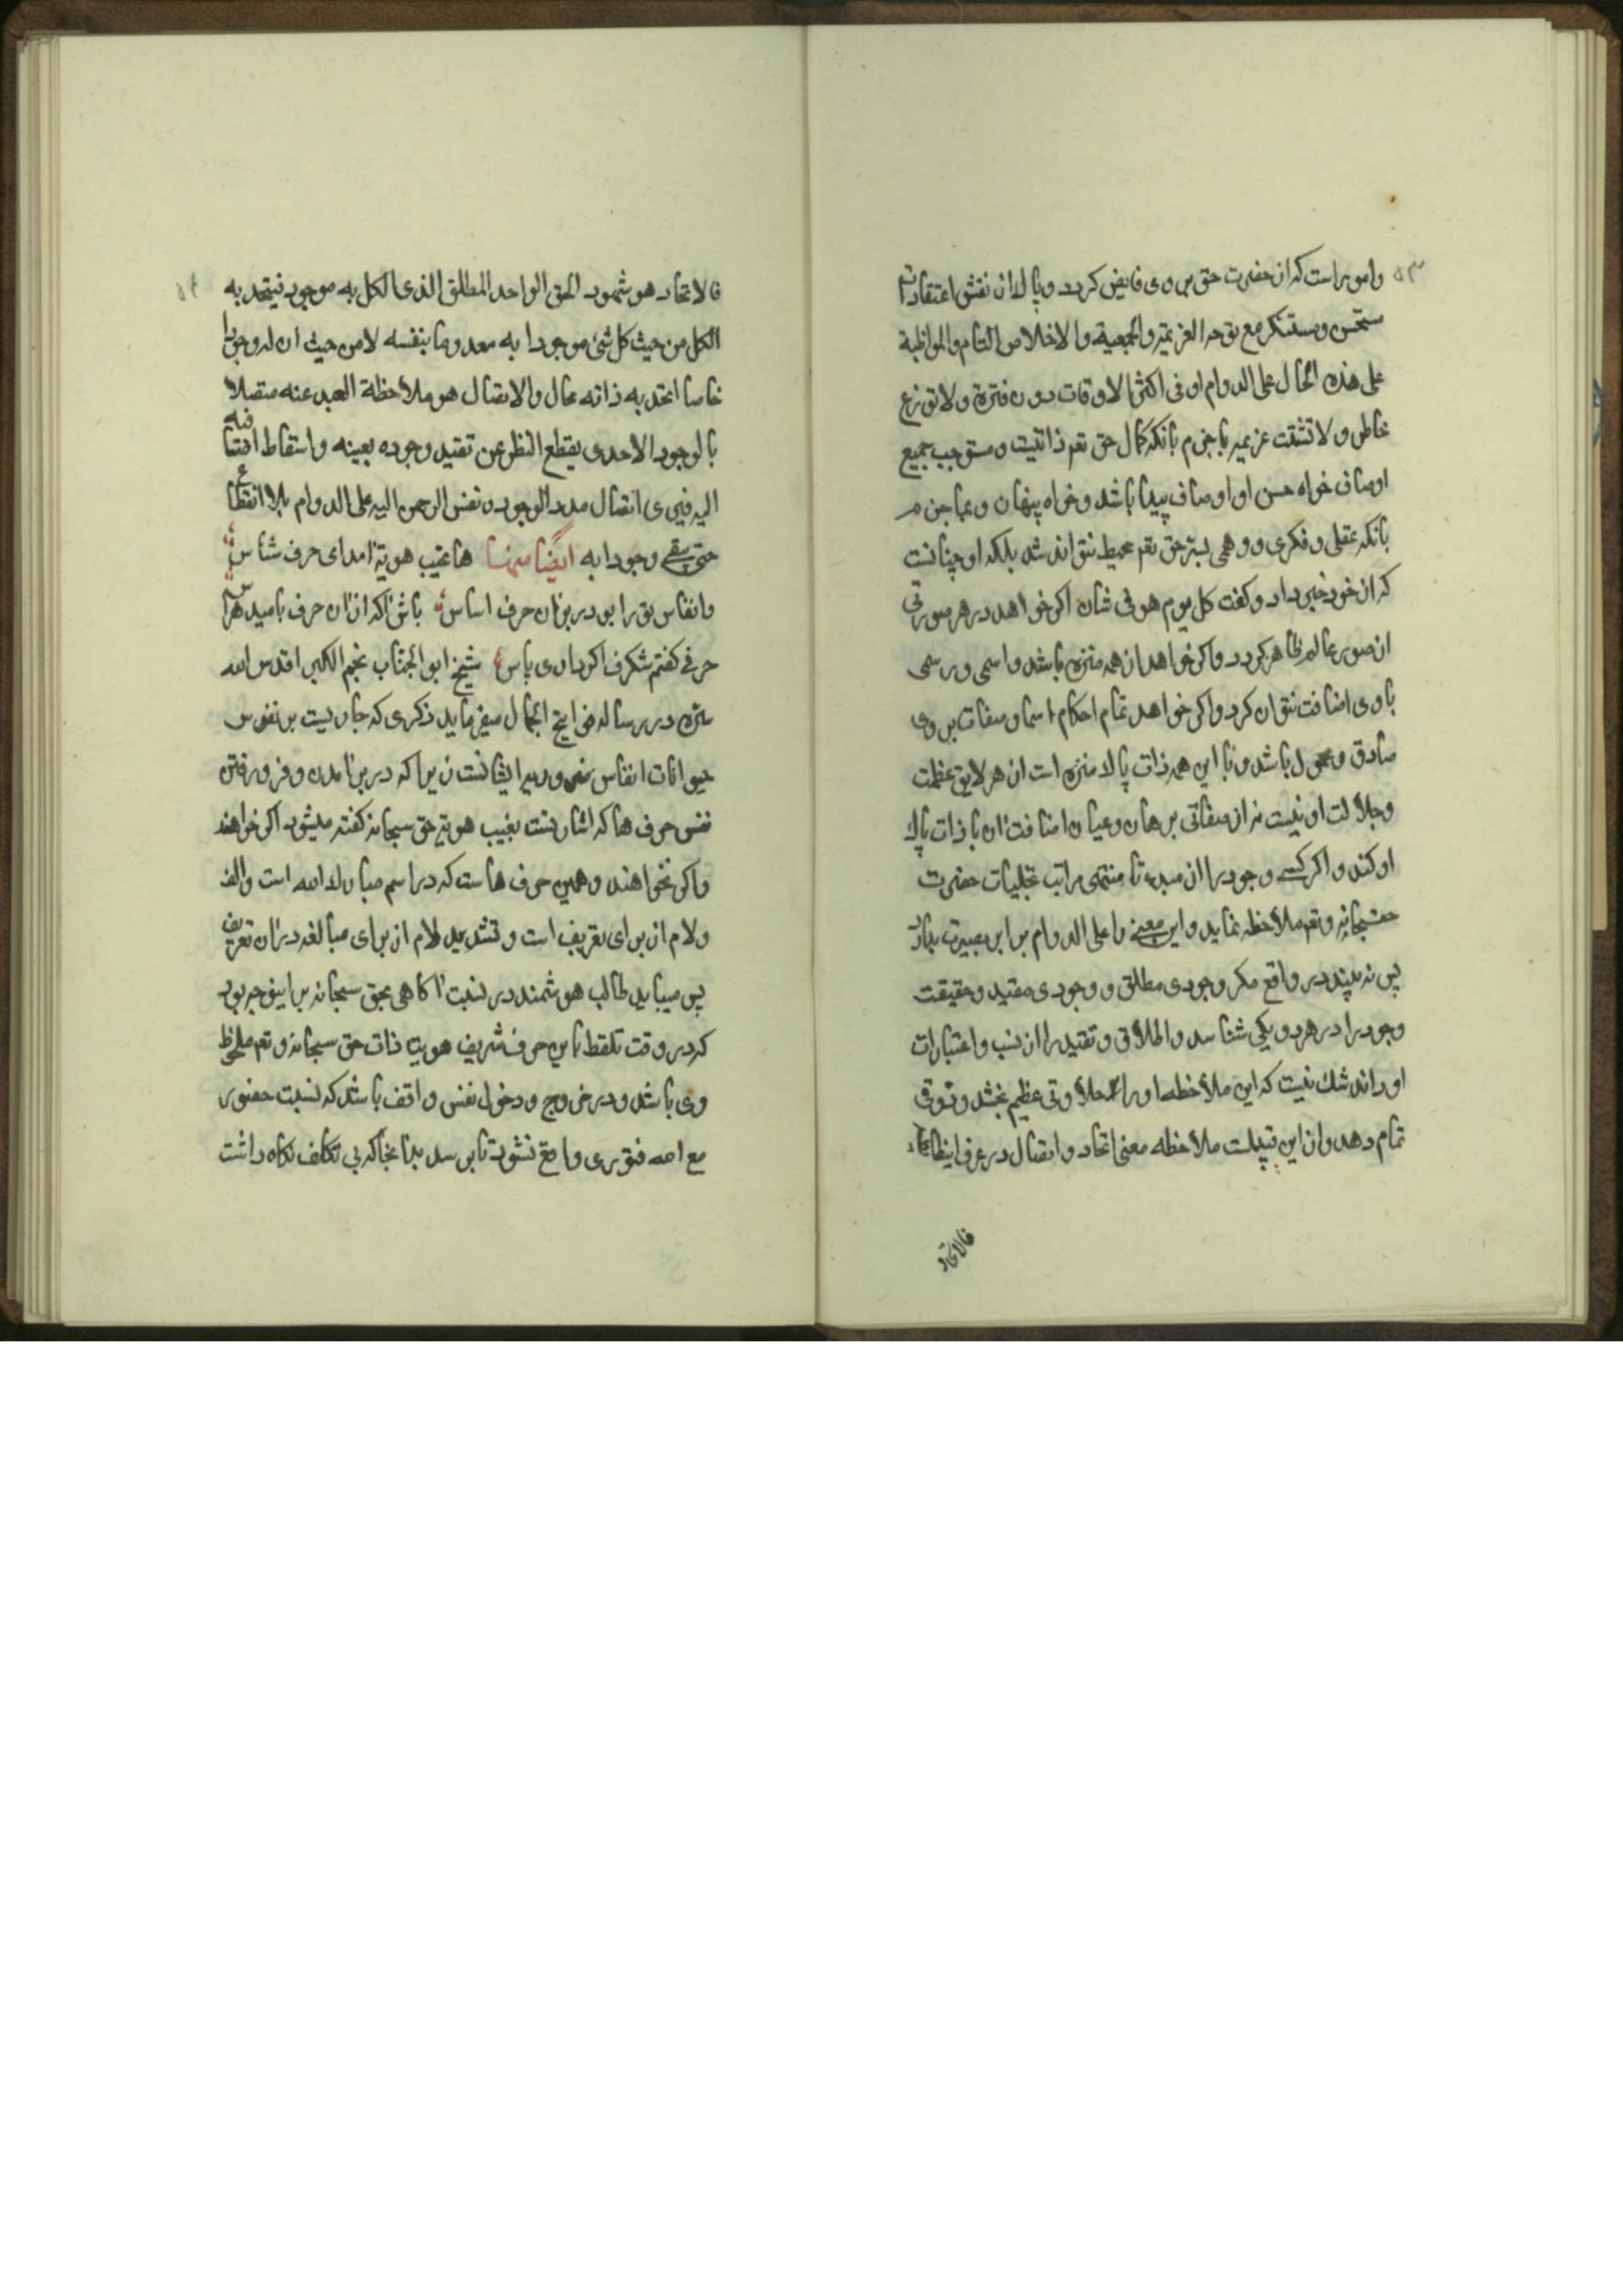 ۵۳
وامور است که از حضرت حق بر وی فایض کردد و پاک از نقش اعتقادات
مستحسن و مستنکر مع توحد العزیمة والجمعیة والاخلاص التام والمواظبة
علی هذه الحال علی الدوام او فی اکثر الاوقات دون فترة ولا توزع
خاطر ولا تشتت عزیمه با جزم بانکه کمال حق تعم ذاتیست و مستوجب جمیع
اوصاف خواه حسن او اوصاف پیدا باشد و خواه پنهان و با جزم
بانکه عقلی و فکری و وهمی بسر حق تعم محیط نتواند شد بلکه او چنانست
که از خود خبر داد و کفت کل یوم هو فی شان اکر خواهد در هر صورتی
از صور عالم ظاهر کردد و اکر خواهد از همه منزه باشد و اسمی و رسمی
با وی اضافت نتوان کرد و اکر خواهد تمام احکام و اسما و صفات بر وی
صادق و محمول باشد و با این همه ذات پاک منزه است از هر لایق عظمت
و جلالت او نیست نه از صفاتی برهان و عیان اضافت ان با ذات پاک
او کند و اکر کسی وجود را از مبدء تا منتهی مراتب تجلیات حضرت
حقسبحانه وتعم ملاحظه نماید و این معنی را علی الدوام برابر بصیرت بدارد
پس نه بیند در واقع مکر وجودی مطلق و وجودی مقید و حقیقت
وجود را در هر دو یکی شناسد و اطلاق و تقیید را از نسب و اعتبارات
او داند شک نیست که این ملاحظه او را حلاوتی عظیم بخشد و ذوقی
تمام دهد و از این قبیلست ملاحظه معنی اتحاد و اتصال در عرف اینطایفه
فالاتحاد
۵۴
فالاتحاد هو شهود الحق الواحد المطلق الذی الکل به موجود فیتحد به
الکل من حیث کل شئ موجودا به معدوما بنفسه لا من حیث ان له وجودا
خاصا اتحد به ذاته محال والاتصال هو ملاحظة العبد عنه متصلا
بالوجود الاحدی بقطع النظر عن تقید وجوده بعینه واسقاط اضافته
الیه فیری اتصال مدد الوجود و نفس الرحمن الیه علی الدوام بلا انقطاع
حتی یبقی وجودا به ایضا منها ها غیب هویة امد ای حرف شناس
وانفاس تو را بود بر ان حرف اساس باش اکه از ان حرف بامید هراس
حرفی کفتم شکرف اکر داری پاس شیخ ابو الجناب نجم الکبرا قدس الله
سره در رساله فوایح الجمال میفرماید ذکری که جاریست بر نفوس
حیوانات انفاس ضروریه ایشانست زیرا که در برامدن و فرو رفتن
نفس حرف ها که اشارتست بغیب هویة حق سبحانه کفته میشود اکر خواهند
و اکر نخواهند و همین حرف هاست که در اسم مبارک الله است و الف
و لام از برای تعریف است و تشدید لام از برای مبالغه در ان تعریف
پس میباید طالب هوشمند در نسبت اکاهی بحق سبحانه براینوجه بود
که در وقت تلفظ باین حرف شریف هویة ذات حق سبحانه وتعم ملحوظ
وی باشد و در خروج و دخول نفس واقف باشد که نسبت حضور
مع الله فتوری واقع نشود تا برسد بدانجا که بی تکلف نکاه داشت